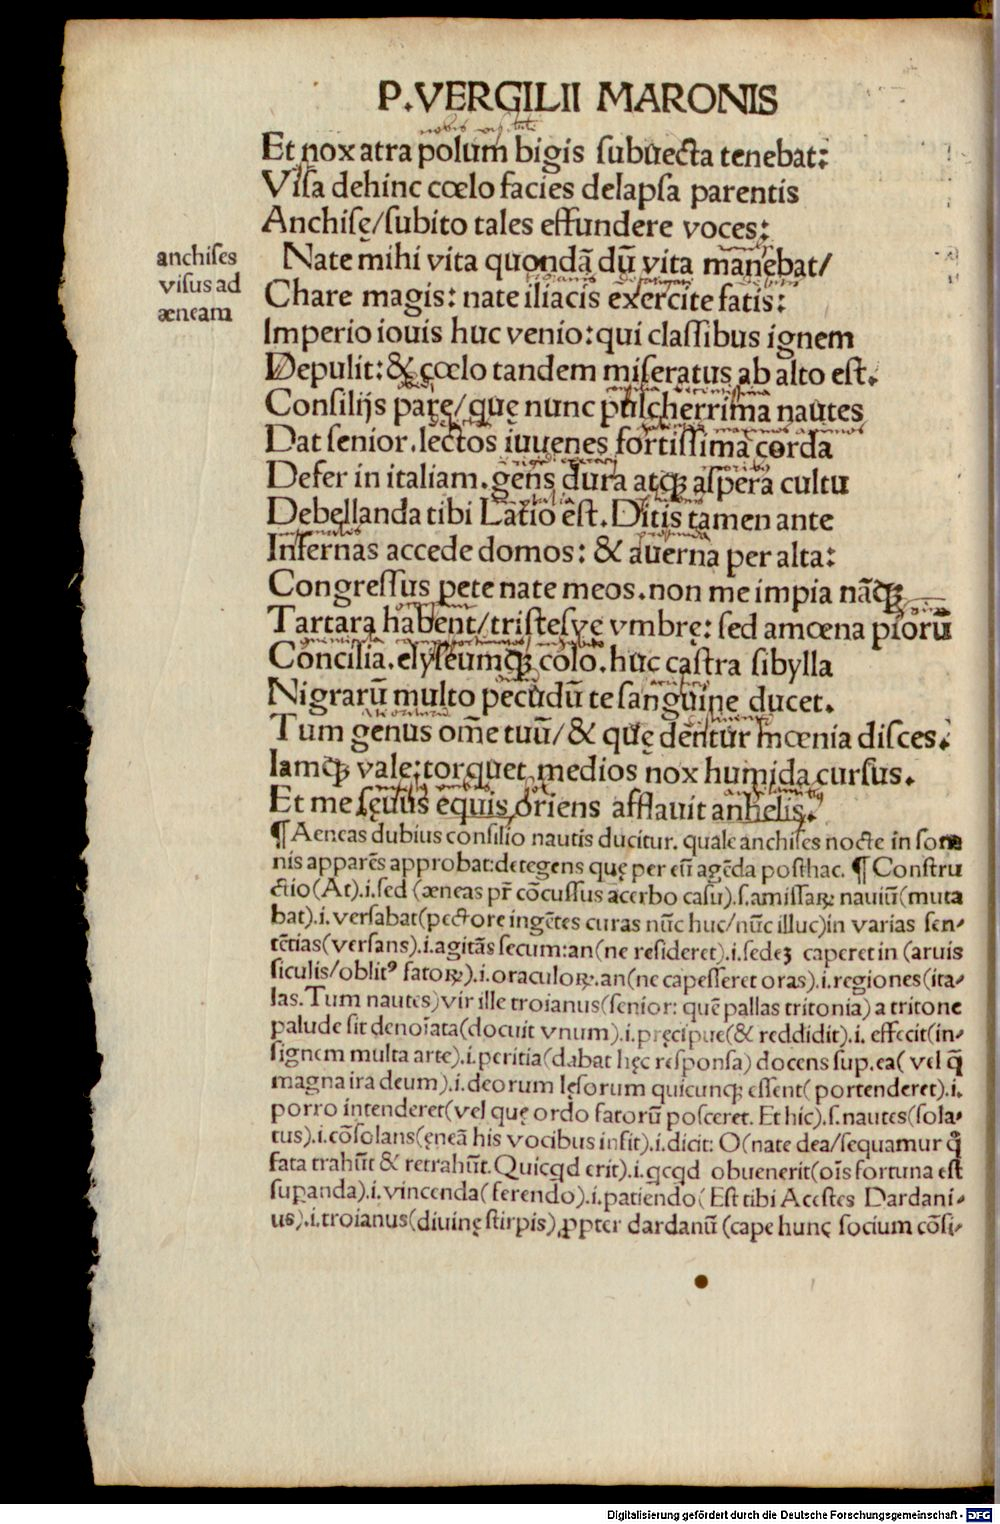 P.VERGILII MARONIS
Et nox atra polum bigis ſubuecta tenebat:
Viſa dehinc cœlo facies delapſa parentis
Anchiſę/ſubito tales effundere voces:
anchiſes
viſus ad
æneam
Nate mihi vita quondã dũ vita manebat/
Chare magis: nate iliacis exercite fatis:
Imperio iouis huc venio: qui claſſibus ignem
Depulit: & cœlo tandem miſeratus ab alto eſt.
Conſilijs parę/quę nunc pulcherrima nautes
Dat ſenior. lectos iuuenes fortiſſima corda
Defer in italiam. gens dura atqꝫ aſpera cultu
Debellanda tibi Latio eſt. Ditis tamen ante
Infernas accede domos: & auerna per alta:
Congreſſus pete nate meos. non me impia nãqꝫ
Tartara habent/triſteſve vmbrę: ſed amœna piorũ
Concilia. elyſeumqꝫ colo. huc caſtra ſibylla
Nigrarũ multo pecudũ te ſanguine ducet.
Tum genus om̄e tuũ/& quę dentur mœnia diſces.
Iamqꝫ vale: torquet medios nox humida curſus.
Et me ſęuus equis oriens afflauit anhelis.
¶ Aeneas dubius conſilio nautis ducitur. quale anchiſes nocte in ſom
nis apparẽs approbat: detegens quę per eũ agẽda poſthac. ¶ Conſtru
ctio(At).i.ſed (æneas pr̃ cõcuſſus acerbo caſu).ſ.amiſſaꝝ nauiũ(muta
bat).i.verſabat(pectore ingẽtes curas nũc huc/nũc illuc)in varias ſen-
tẽtias(verſans).i.agitãs ſecum: an(ne reſideret).i.ſedeꝫ caperet in (aruis
ſiculis/oblitꝰ fatoꝝ).i.oraculoꝝ.an(ne capeſſeret oras).i.regiones(ita-
las. Tum nautes) vir ille troianus(ſenior: quẽ pallas tritonia) a tritone
palude ſit denoĩata(docuit vnum).i.pręcipue(& reddidit).i. effecit(in-
ſignem multa arte).i.peritia(dabat hęc reſponſa) docens ſup.ea( vel q̃
magna ira deum).i.deorum lęſorum quicunqꝫ eſſent( portenderet).i.
porro intenderet(vel quę ordo fatorũ poſceret. Et hic).ſ.nautes(ſola-
tus).i.cõſolans(ęneã his vocibus inſit).i.dicit: O(nate dea/ſequamur q̊
fata trahũt & retrahũt. Quicqd erit).i.qcqd obuenerit(oĩs fortuna eſt
ſuꝑanda).i.vincenda(ferendo).i.patiendo( Eſt tibi Aceſtes Dardani-
us).i.troianus(diuinę ſtirpis) ꝓpter dardanũ (cape hunc ſocium cõſi-
Digitalisierung gefördert durch die Deutsche Forschungsgemeinschaft - DFG